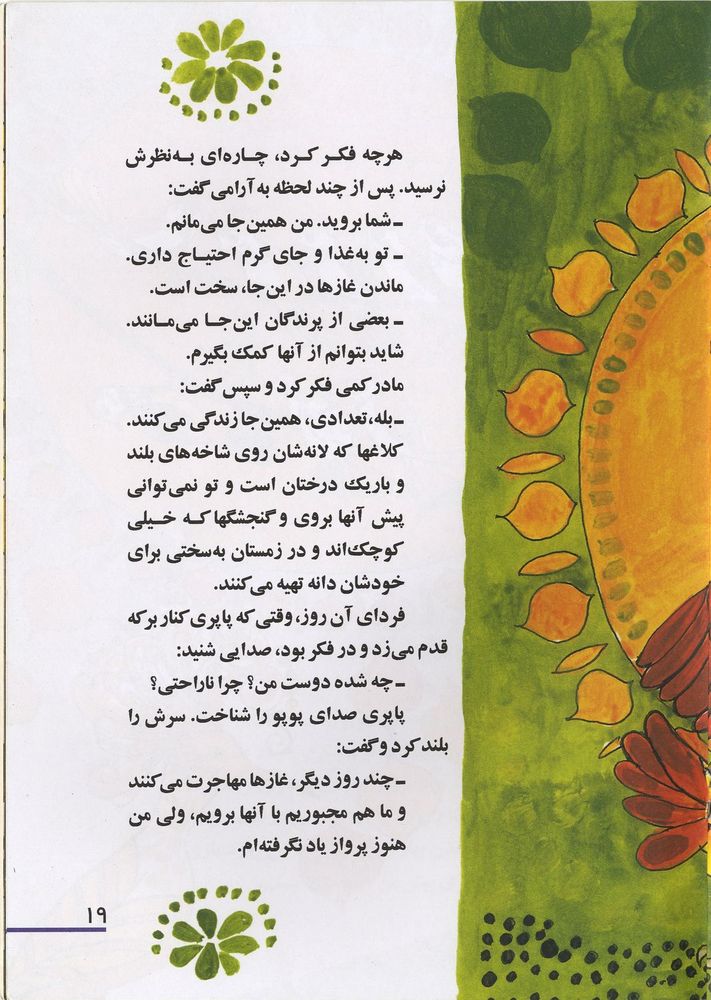 هرچه فکر کرد، چاره‌ای به‌نظرش
نرسید. پس از چند لحظه به آرامی گفت:
ـ شما بروید. من همین‌جا می‌مانم.
ـ تو به‌غذا و جای گرم احتیاج داری.
ماندن غازها در این‌جا، سخت است.
ـ بعضی از پرندگان این‌جا می‌مانند.
شاید بتوانم از آنها کمک بگیرم.
مادر کمی فکر کرد و سپس گفت:
ـ بله، تعدادی، همین‌جا زندگی می‌کنند.
کلاغها که لانه‌شان روی شاخه‌های بلند
و باریک درختان است و تو نمی‌توانی
پیش آنها بروی و گنجشگها که خیلی
کوچک‌اند و در زمستان به‌سختی برای
خودشان دانه تهیه می‌کنند.
فردای آن روز، وقتی که پاپری کنار برکه
قدم می‌زد و در فکر بود، صدایی شنید:
ـ چه شده دوست من؟ چرا ناراحتی؟
پاپری صدای پوپو را شناخت. سرش را
بلند کرد و گفت:
ـ چند روز دیگر، غازها مهاجرت می‌کنند
و ما هم مجبوریم با آنها برویم، ولی من
هنوز پرواز یاد نگرفته‌ام.
۱۹